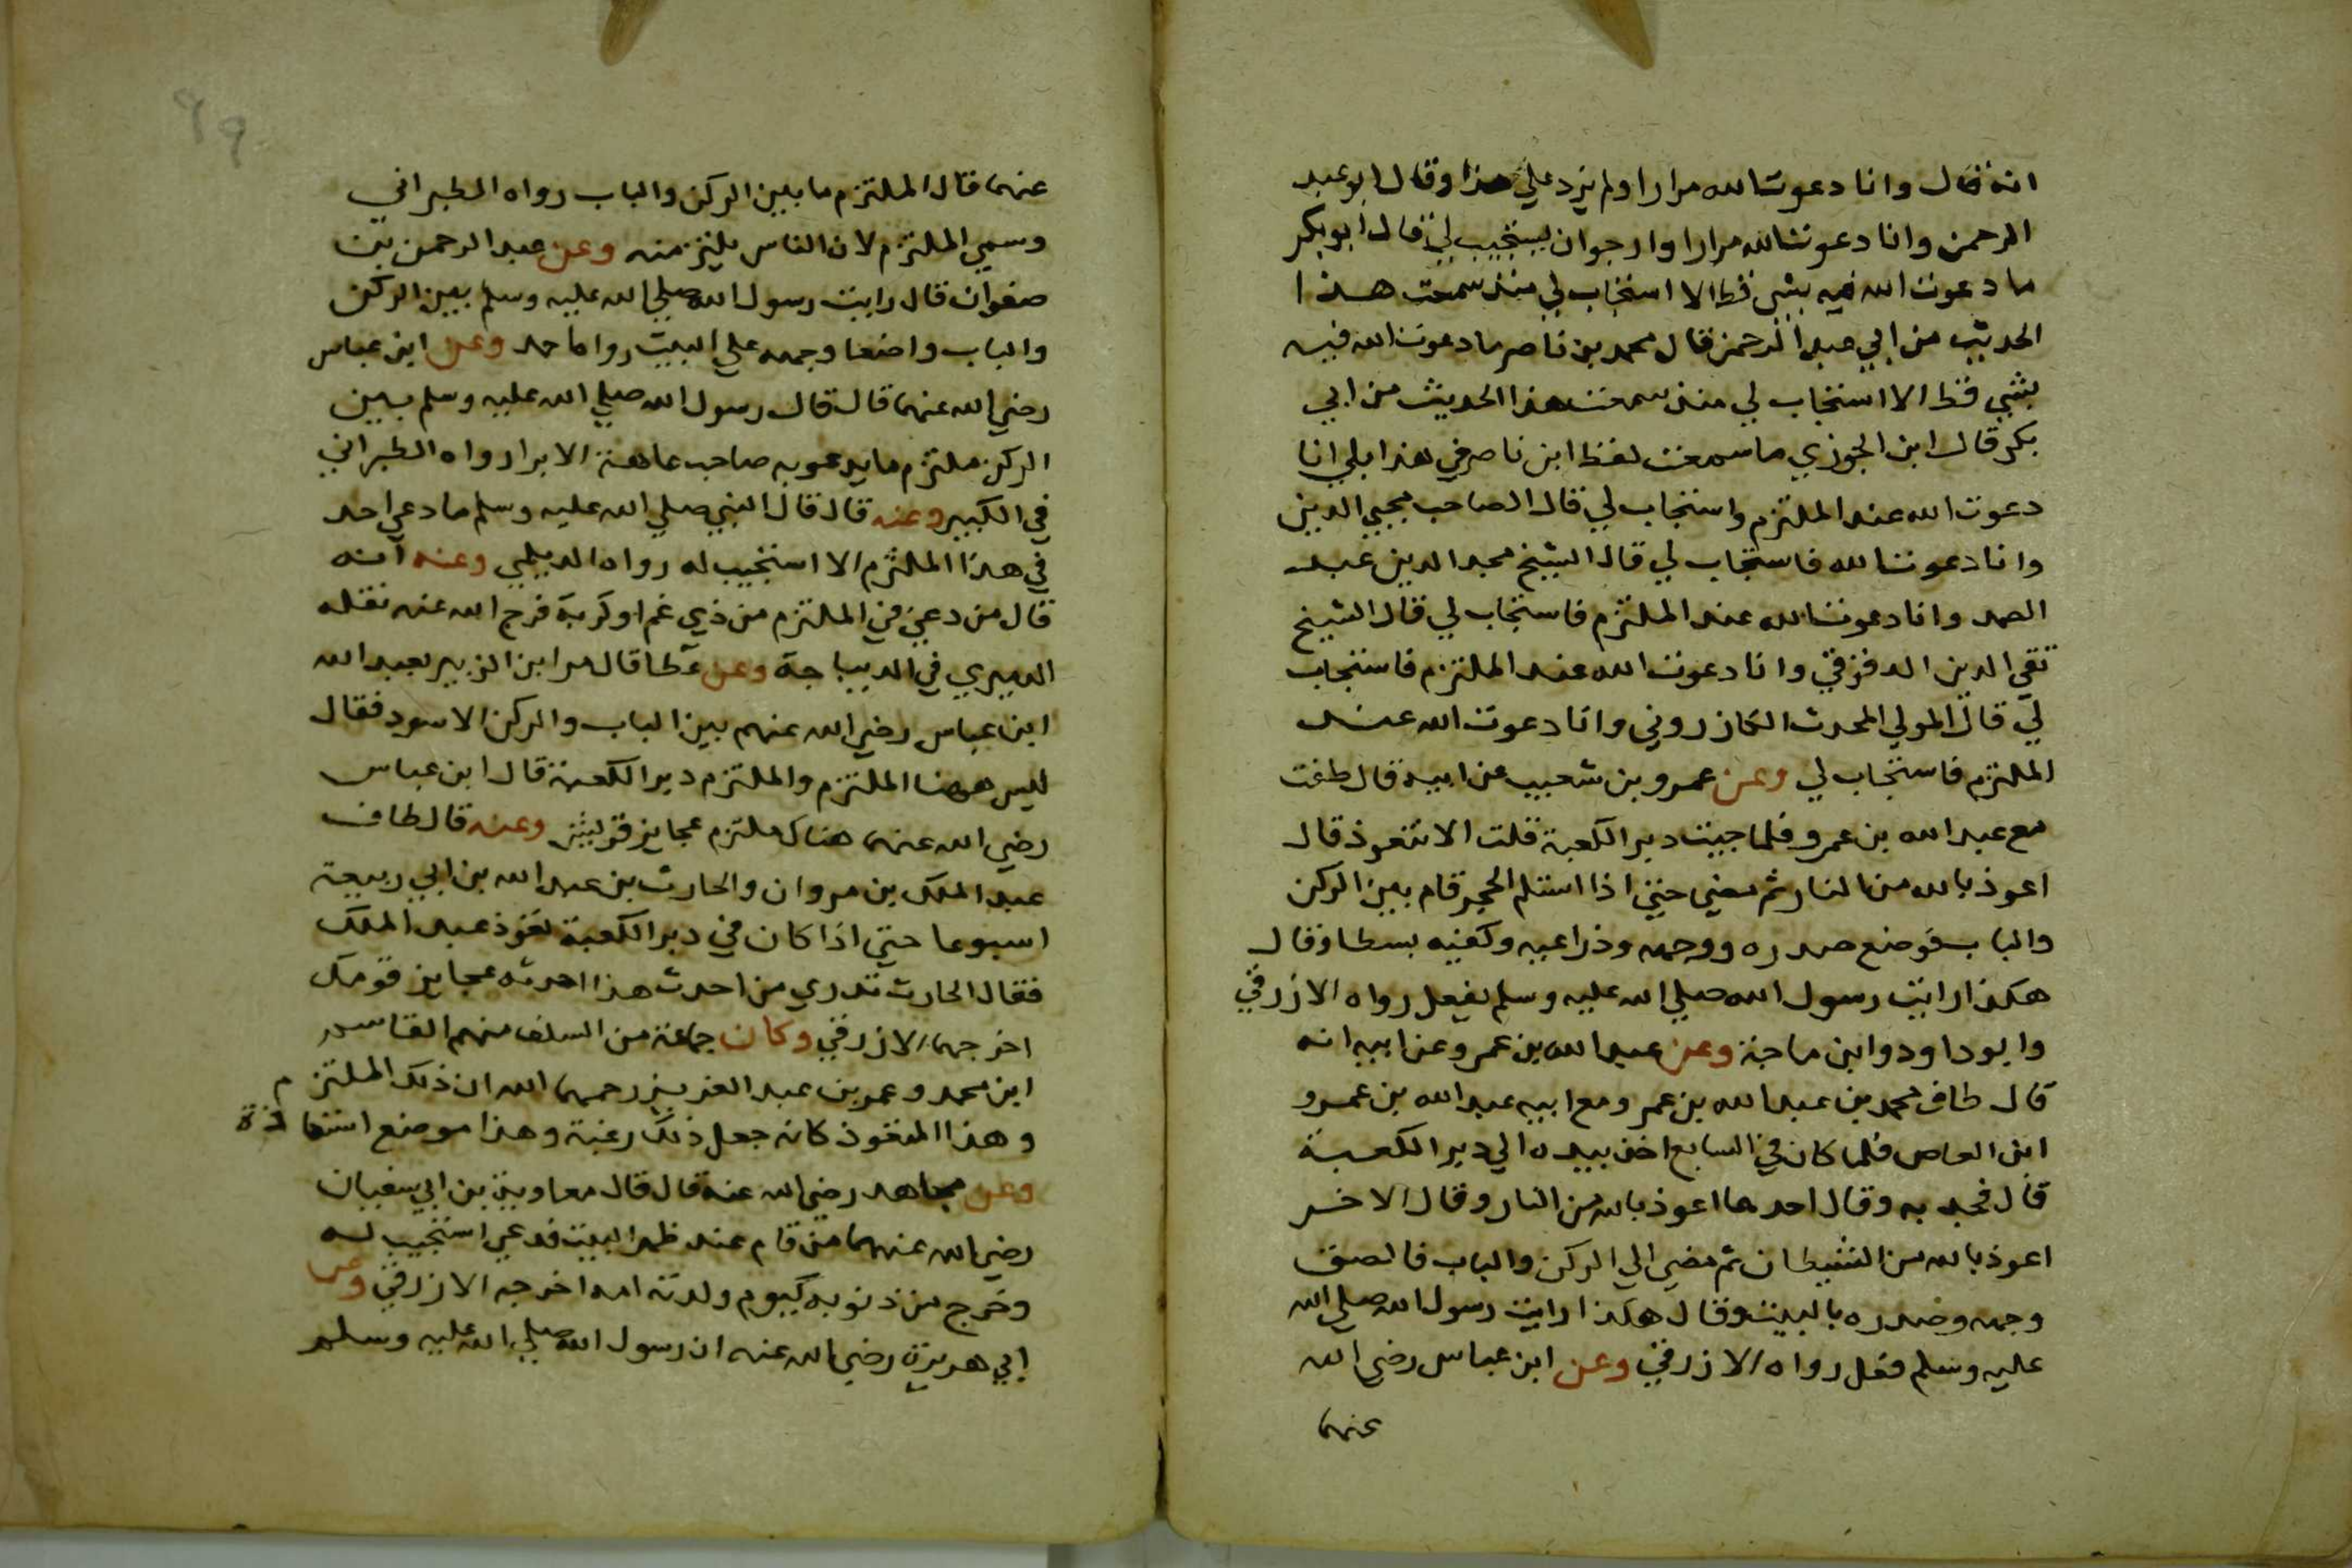 انه قال وانا دعوت الله مرارا ولم يزد علي هذا وقال ابو عبد
الرحمن وانا دعوت الله مرارا وارجوان يستجيب لي قال ابو بكر
ما دعوت الله فيه بشي قط الا استجاب لي منذ سمعت هذا
الحديث من ابي عبد الرحمن قال محمد بن ناصر ما دعوت الله فيه
بشي قط الا استجاب لي منذ سمعت هذا الحديث من ابي
بكر قال ابن الجوزي ما سمعت لفظ ابن ناصر في هذا بلي انا
دعوت الله عند الملتزم واستجاب لي قال الصاحب محيي الدين
وانا دعوت الله فاستجاب لي قال الشيخ مجد الدين عبد
الصمد وانا دعوت الله عند الملتزم فاستجاب لي قال الشيخ
تقي الدين وانا دعوت الله عند الملتزم فاستجاب
لي قال المولي المحدث الكازروني وانا دعوت الله عند
الملتزم فاستجاب لي وعن عمرو بن شعيب عن ابيه قال طفت
مع عبد الله بن عمرو فلما جيت دبر الكعبة قلت الا تتعوذ قال
اعوذ بالله من النار ثم مضي حتي اذا استلم الحجر قام بين الركن
والباب فوضع صدره ووجهه وذراعيه وكفيه بسطا وقال
هكذا رايت رسول الله صلي الله عليه وسلم يفعل رواه الازرقي
وابو داود وابن ماجة وعن عبد الله بن عمرو عن ابيه انه
قال طاف محمد بن عبد الله بن عمر ومع ابيه عبد الله بن عمرو
ابن العاص فلما كان في السابع اخذ بيده الي دبر الكعبة
قال فجبد به وقال احدهما اعوذ بالله من النار وقال الاخر
اعوذ بالله من الشيطان ثم مضي الي الركن والباب فالصق
وجهه وصدره بالبيت وقال هكذا رايت رسول الله صلي الله
عليه وسلم فعل رواه الازرقي وعن ابن عباس رضي الله
عنهما
٩٩
عنهما قال الملتزم ما بين الركن والباب رواه الطبراني
وسمي الملتزم لان الناس يلتزمنه وعن عبد الرحمن بن
صفوان قال رايت رسول الله صلي الله عليه وسلم بين الركن
والباب واضعا وجهه علي البيت رواه احمد وعن ابن عباس
رضي الله عنهما قال قال رسول الله صلي الله عليه وسلم بين
الركن ملتزم ما يدعو به صاحب عاهة الا برا رواه الطبراني
في الكبير وعنه قال قال النبي صلي الله عليه وسلم ما دعي احد
في هذا الملتزم الا استجيب له رواه الديلمي وعنه انه
قال من دعي في الملتزم من ذي غم او كربة فرج الله عنه نقله
الدميري في الديباجة وعن عطا قال مر ابن الزبير بعبد الله
ابن عباس رضي الله عنهم بين الباب والركن الاسود فقال
ليس ههنا الملتزم والملتزم دبر الكعبة قال ابن عباس
رضي الله عنهما هناك ملتزم عجايز قريش وعنه قال طاف
عبد الملك بن مروان والحارث بن عبد الله بن ابي ربيعة
اسبوعا حتي اذا كان في دبر الكعبة تعوذ عبد الملك
فقال الحارث تدري من احدث هذا احدثه عجايز قومك
اخرجهما الازرقي وكان جماعة من السلف منهم القاسم
ابن محمد وعمر بن عبد العزيز رحمهما الله ان ذلك الملتزم
وهذا المتعوذ كانه جعل ذلك رغبة وهذا موضع استعاذة
وعن مجاهد رضي الله عنه قال قال معاوية بن ابي سفيان
رضي الله عنهما من قام عند ظهر البيت فدعي استجيب له
وخرج من ذنوبه كيوم ولدته امه اخرجه الازرقي وعن
ابي هريرة رضي الله عنه ان رسول الله صلي الله عليه وسلم